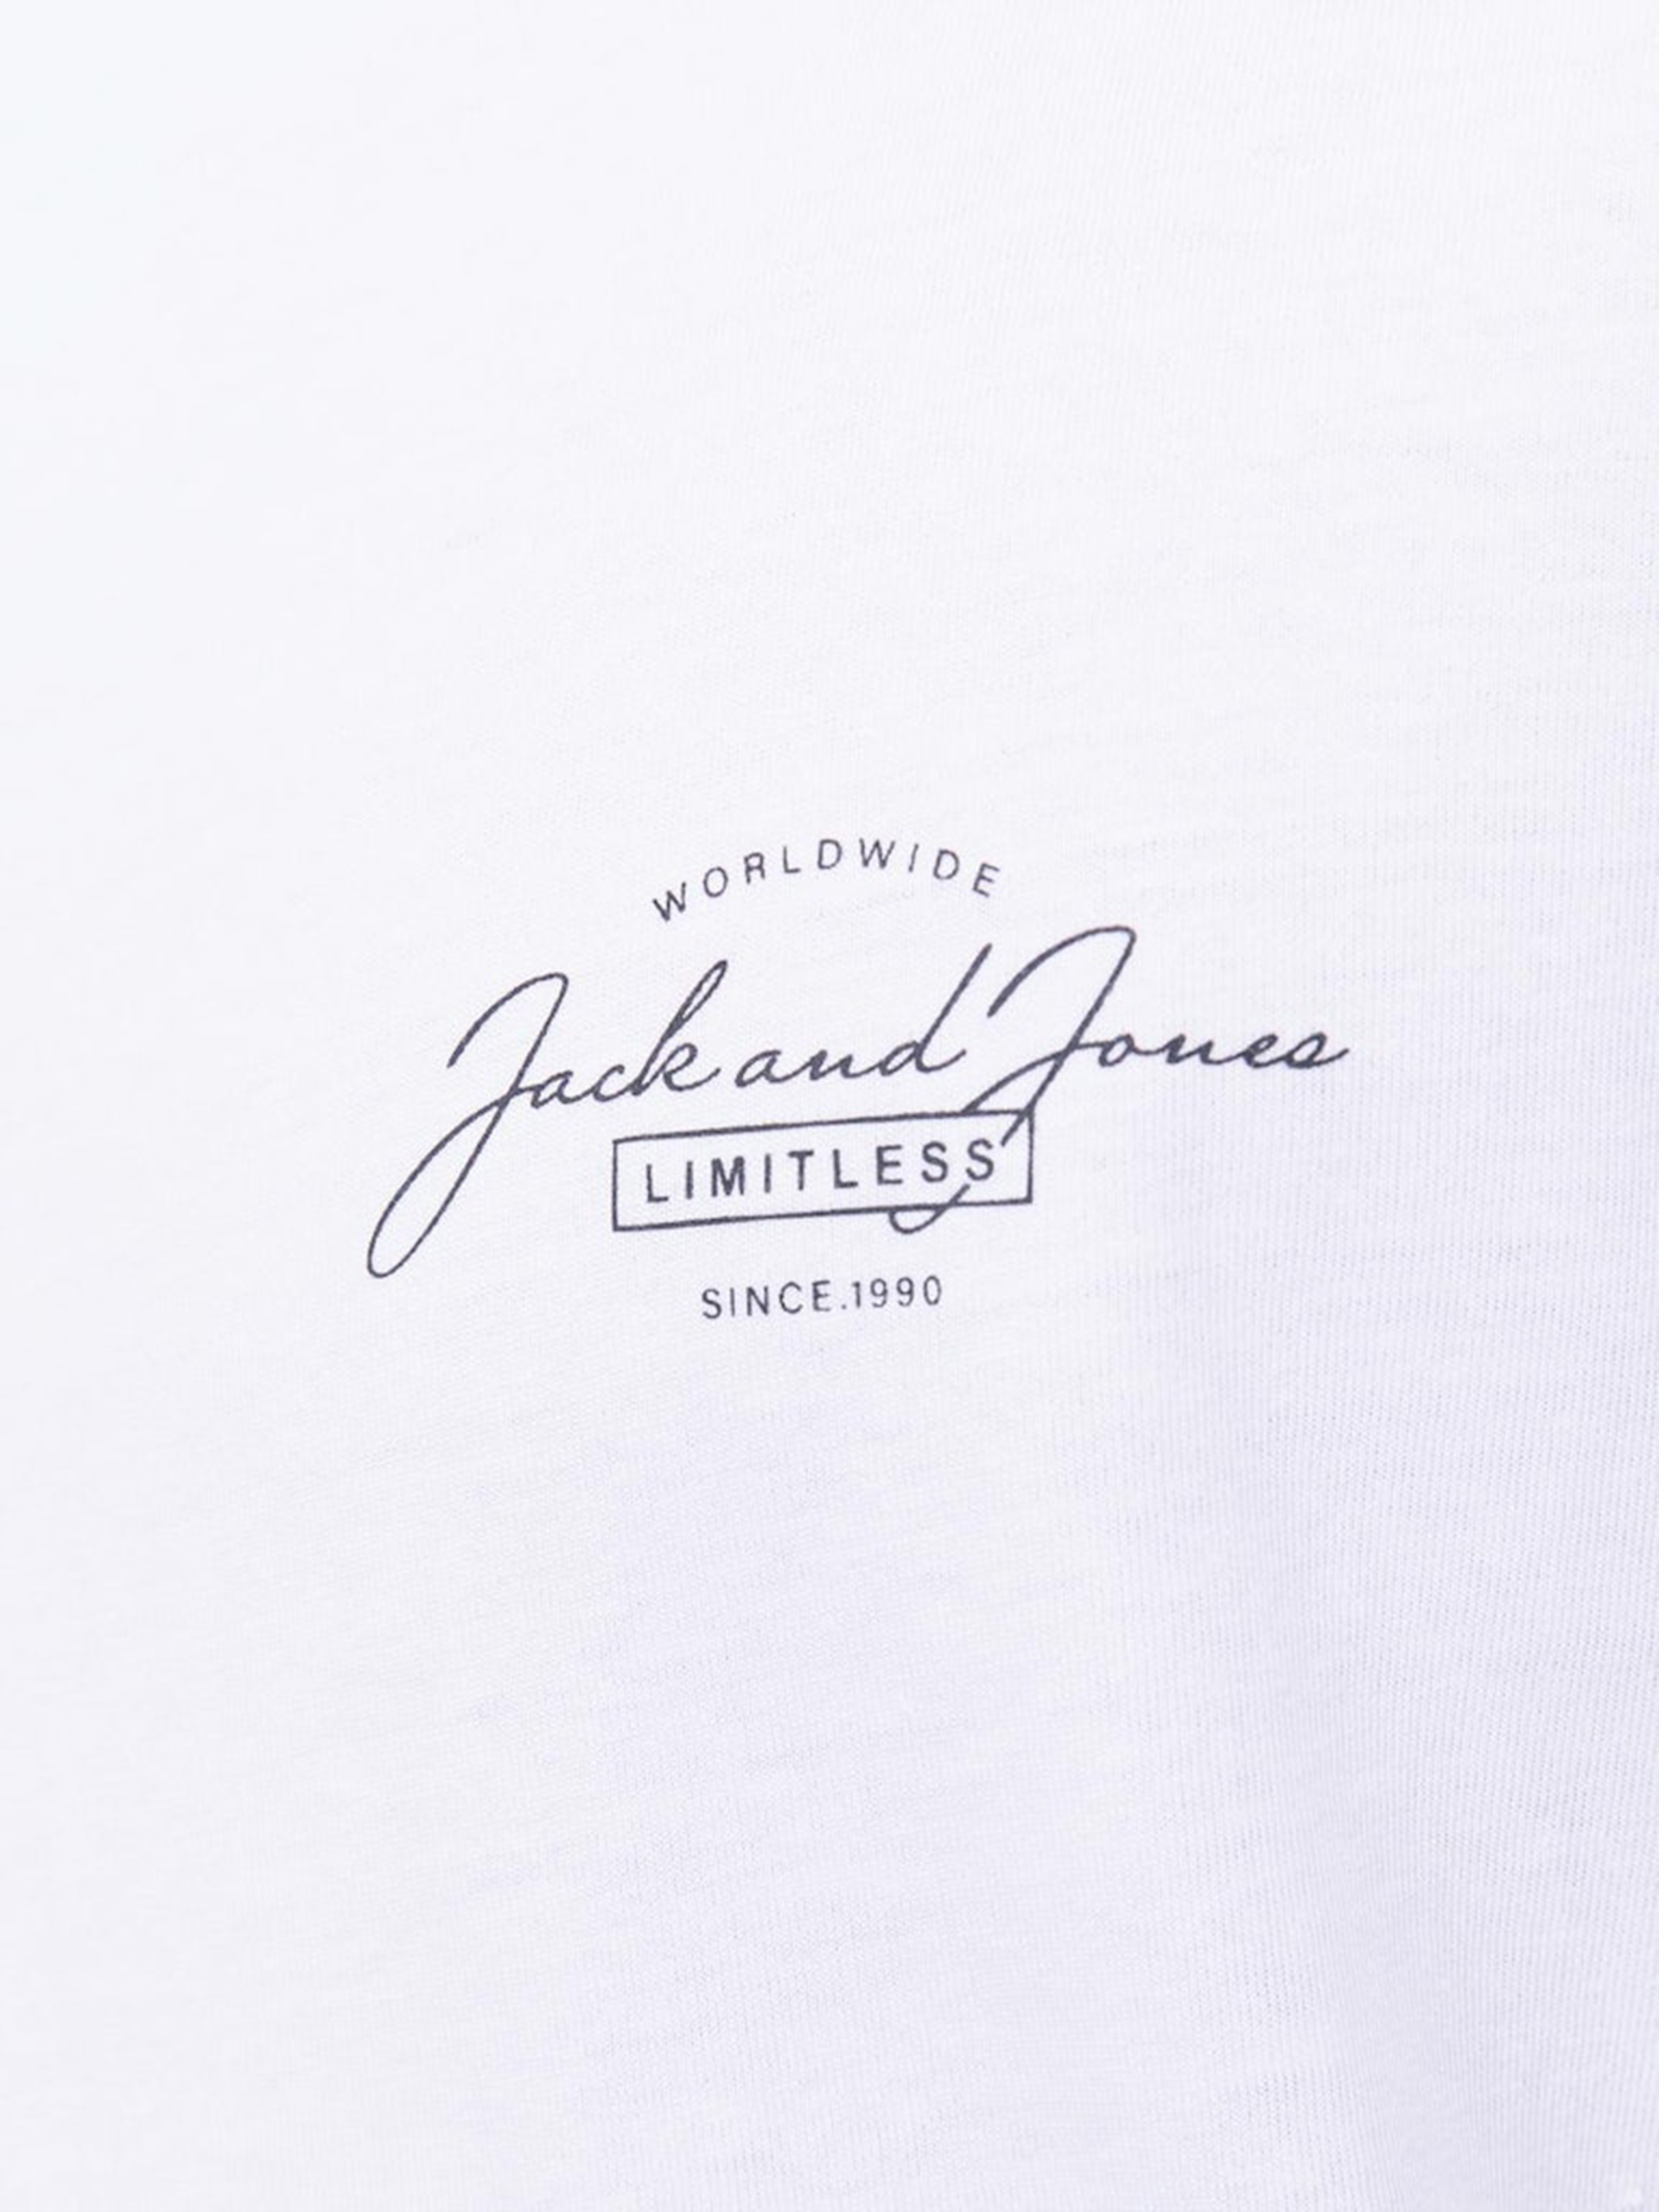 WORLDWIDE
Jack and Jones
LIMITLESS
SINCE.1990